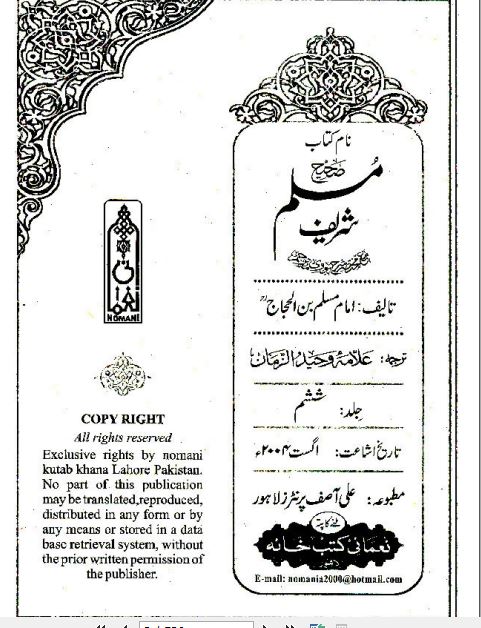 نام کتاب
صحیح
مسلم
شریف
تالیف: امام مسلم بن الحجاجؒ
ترجمہ: علامہ وحید الزمان
جلد: ششم
تاریخ اشاعت: اگست ۲۰۰۴ء
مطبوعہ: علی آصف پرنٹرز لاہور
ملنے کا پتہ
نعمانی کتب خانہ
E-mail: nomania2000@hotmail.com
NOMANI
COPY RIGHT
All rights reserved
Exclusive rights by nomani
kutab khana Lahore Pakistan.
No part of this publication
may be translated,reproduced,
distributed in any form or by
any means or stored in a data
base retrieval system, without
the prior written permission of
the publisher.